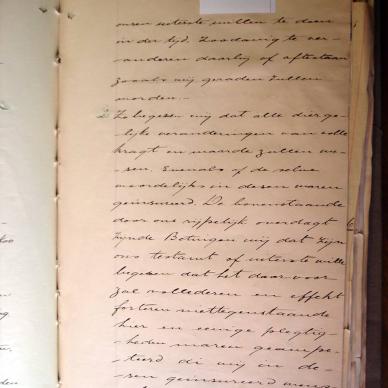 onzen uiterste willen te doen
in der tijd. Zoodanig te ver-
anderen daarbij of aftestaan
zooals wij geraden zullen
worden.-
Zo begeren wij dat alle dierge-
lijke veranderingen van volle
kragt en waarde zullen we-
sen. Evenals of de selve
woordelijks in desen waren
geinsereerd. De bovenstaande
door ons rijpelijk overdagt
zynde Betuigen wij dat zyn
ons testament of uiterste wille
begeren dat het daar voor
zal
en effekt
sorteren niettegenstaande
hier en eenige plegtig-
heden waren geampe-
di wij in de-
sen geinsereerd